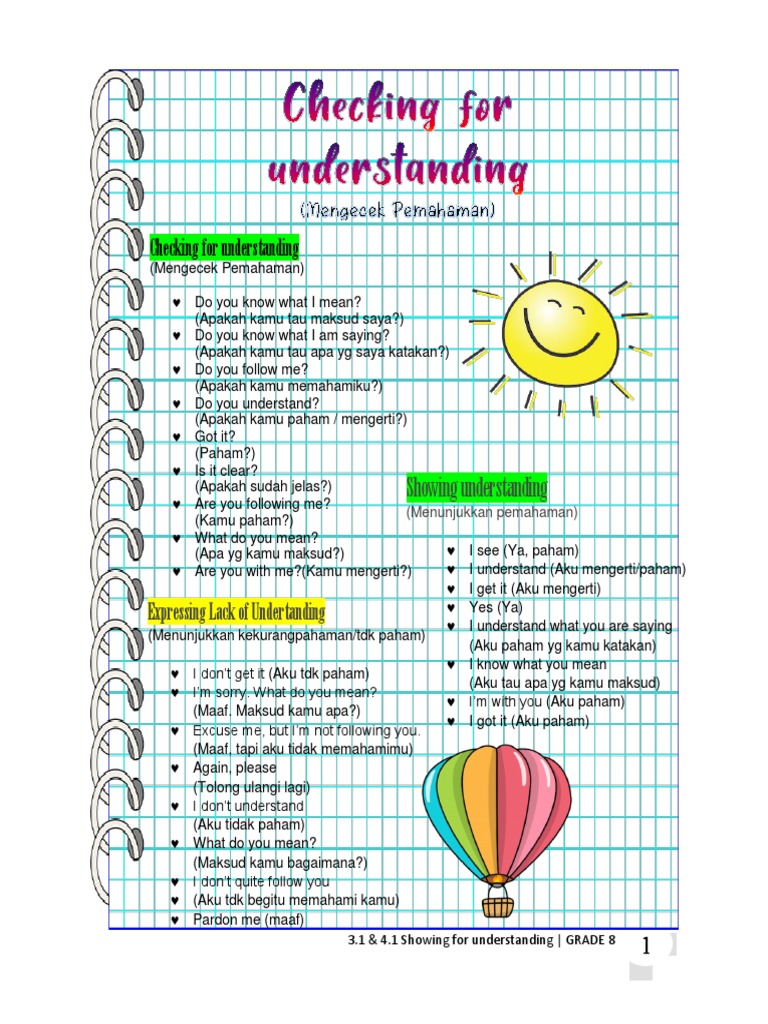 Checking for
understanding
(Mengecek Pemahaman)
Checking for understanding
(Mengecek Pemahaman)
♥ Do you know what I mean?
(Apakah kamu tau maksud saya?)
♥ Do you know what I am saying?
(Apakah kamu tau apa yg saya katakan?)
♥ Do you follow me?
(Apakah kamu memahamiku?)
♥ Do you understand?
(Apakah kamu paham / mengerti?)
♥ Got it?
(Paham?)
♥ Is it clear?
(Apakah sudah jelas?)
♥ Are you following me?
(Kamu paham?)
♥ What do you mean?
(Apa yg kamu maksud?)
♥ Are you with me?(Kamu mengerti?)
Expressing Lack of Undertanding
(Menunjukkan kekurangpahaman/tdk paham)
♥ I don't get it (Aku tdk paham)
♥ I'm sorry. What do you mean?
(Maaf. Maksud kamu apa?)
♥ Excuse me, but I'm not following you.
(Maaf, tapi aku tidak memahamimu)
♥ Again, please
(Tolong ulangi lagi)
♥ I don't understand
(Aku tidak paham)
♥ What do you mean?
(Maksud kamu bagaimana?)
♥ I don't quite follow you
♥ (Aku tdk begitu memahami kamu)
♥ Pardon me (maaf)
Showing understanding
(Menunjukkan pemahaman)
♥ I see (Ya, paham)
♥ I understand (Aku mengerti/paham)
♥ I get it (Aku mengerti)
♥ Yes (Ya)
♥ I understand what you are saying
(Aku paham yg kamu katakan)
♥ I know what you mean
(Aku tau apa yg kamu maksud)
♥ I'm with you (Aku paham)
♥ I got it (Aku paham)
3.1 & 4.1 Showing for understanding | GRADE 8
1